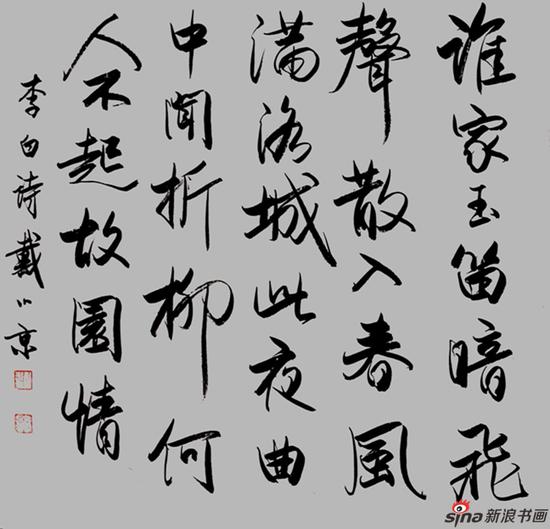 誰家玉笛暗飛
聲散入春風
滿洛城此夜曲
中聞折柳何
人不起故園情
李白詩戴小京
sina新浪书画